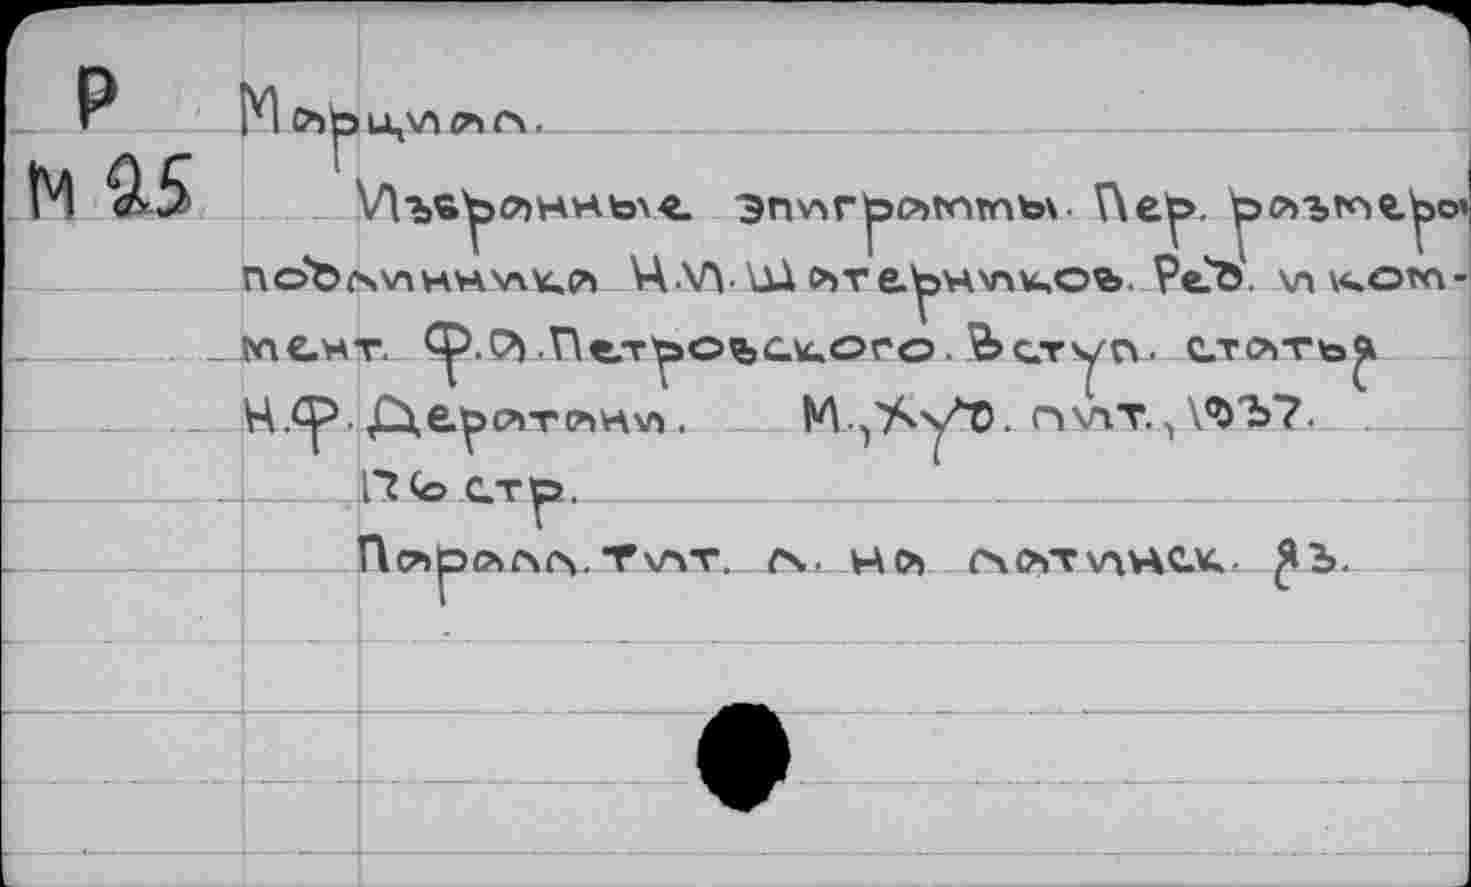 Р
М 25
Марциал.
Избранные эпиграммы. Пер. размеро
подлинника Н.И. Шатерников. Ред. и ком-
мент. Ф.А. Петровского. Вступ. статья
Н.Ф. Дератани. М., Худ. лит., 1937.
176 стр.
Паралл. тит. л. на латинск. яз.